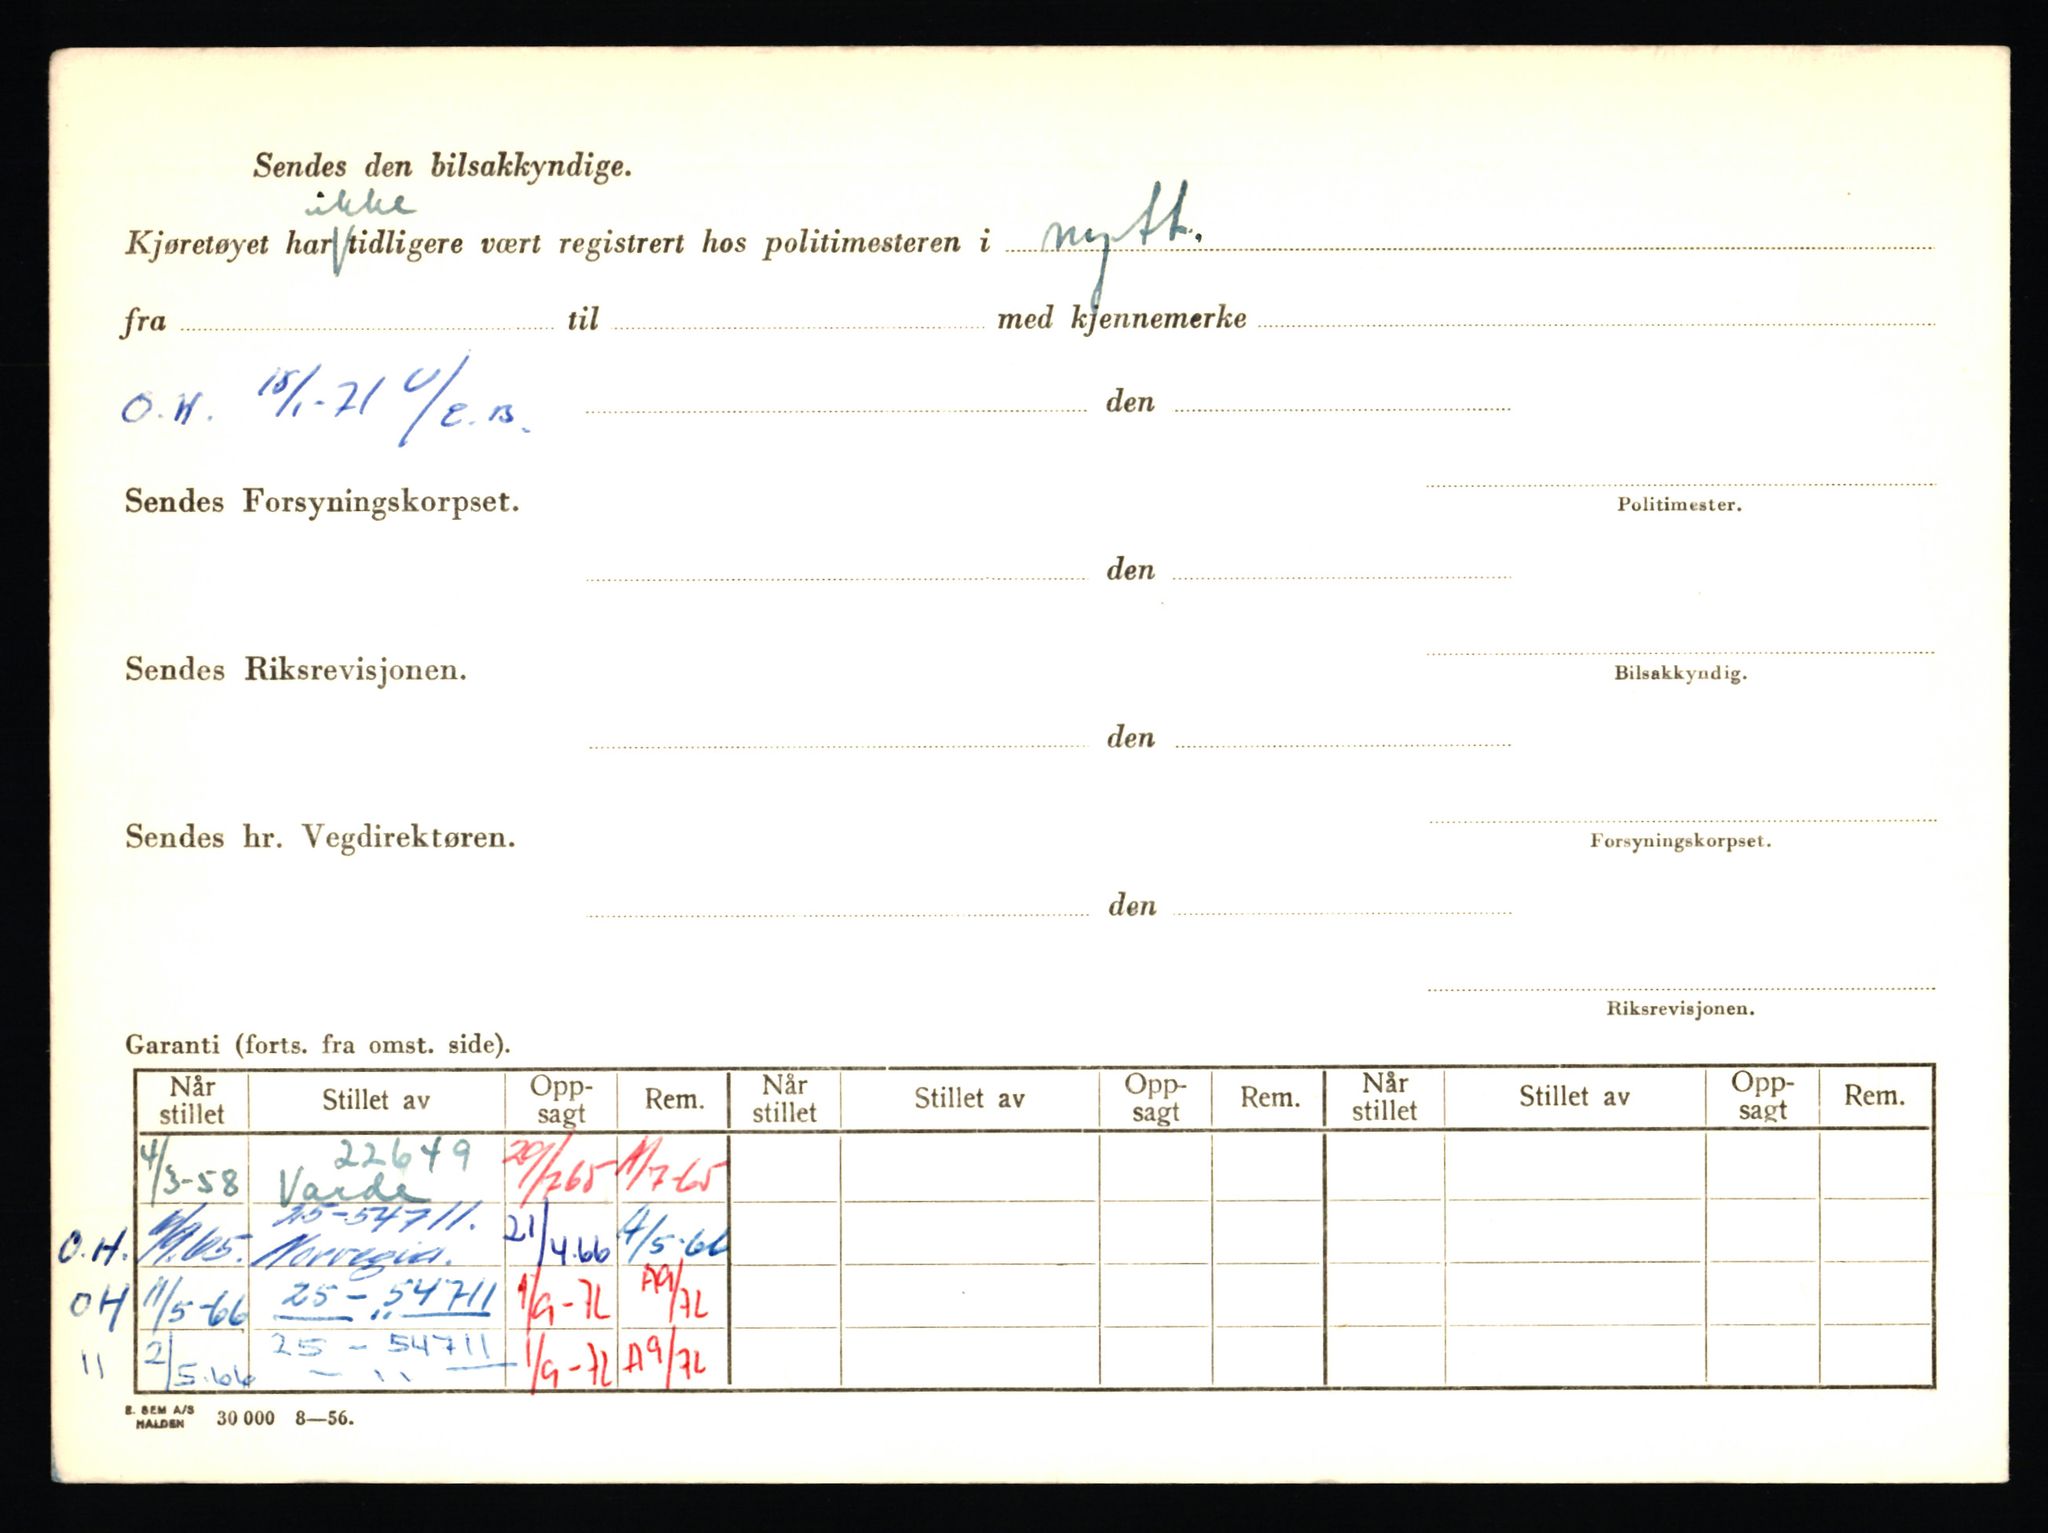 Sendes den bilsakkyndige.
ikke
Kjøretøyet har tidligere vært registrert hos politimesteren i nytt.
fra til med kjennemerke
O.H. 15/1-71 U/E.B. den
Sendes Forsyningskorpset. Politimester.
den
Sendes Riksrevisjonen. Bilsakkyndig.
den
Sendes hr. Vegdirektøren. Forsyningskorpset.
den
Riksrevisjonen.
Garanti (forts. fra omst. side).
Når stillet Stillet av Opp-sagt Rem. Når stillet Stillet av Opp-sagt Rem. Når stillet Stillet av Opp-sagt Rem.
4/3-58 22649 Varde 20/7 65 /7-65
O.H. 25-54711. Norvegia. 21/4.66 4/5-66
OH 11/5-66 25-54711 -"- 1/9-72 A9/72
" 2/5.66 25-54711 -"- 1/9-72 A9/72
E. SEM A/S
HALDEN 30 000 8—56.